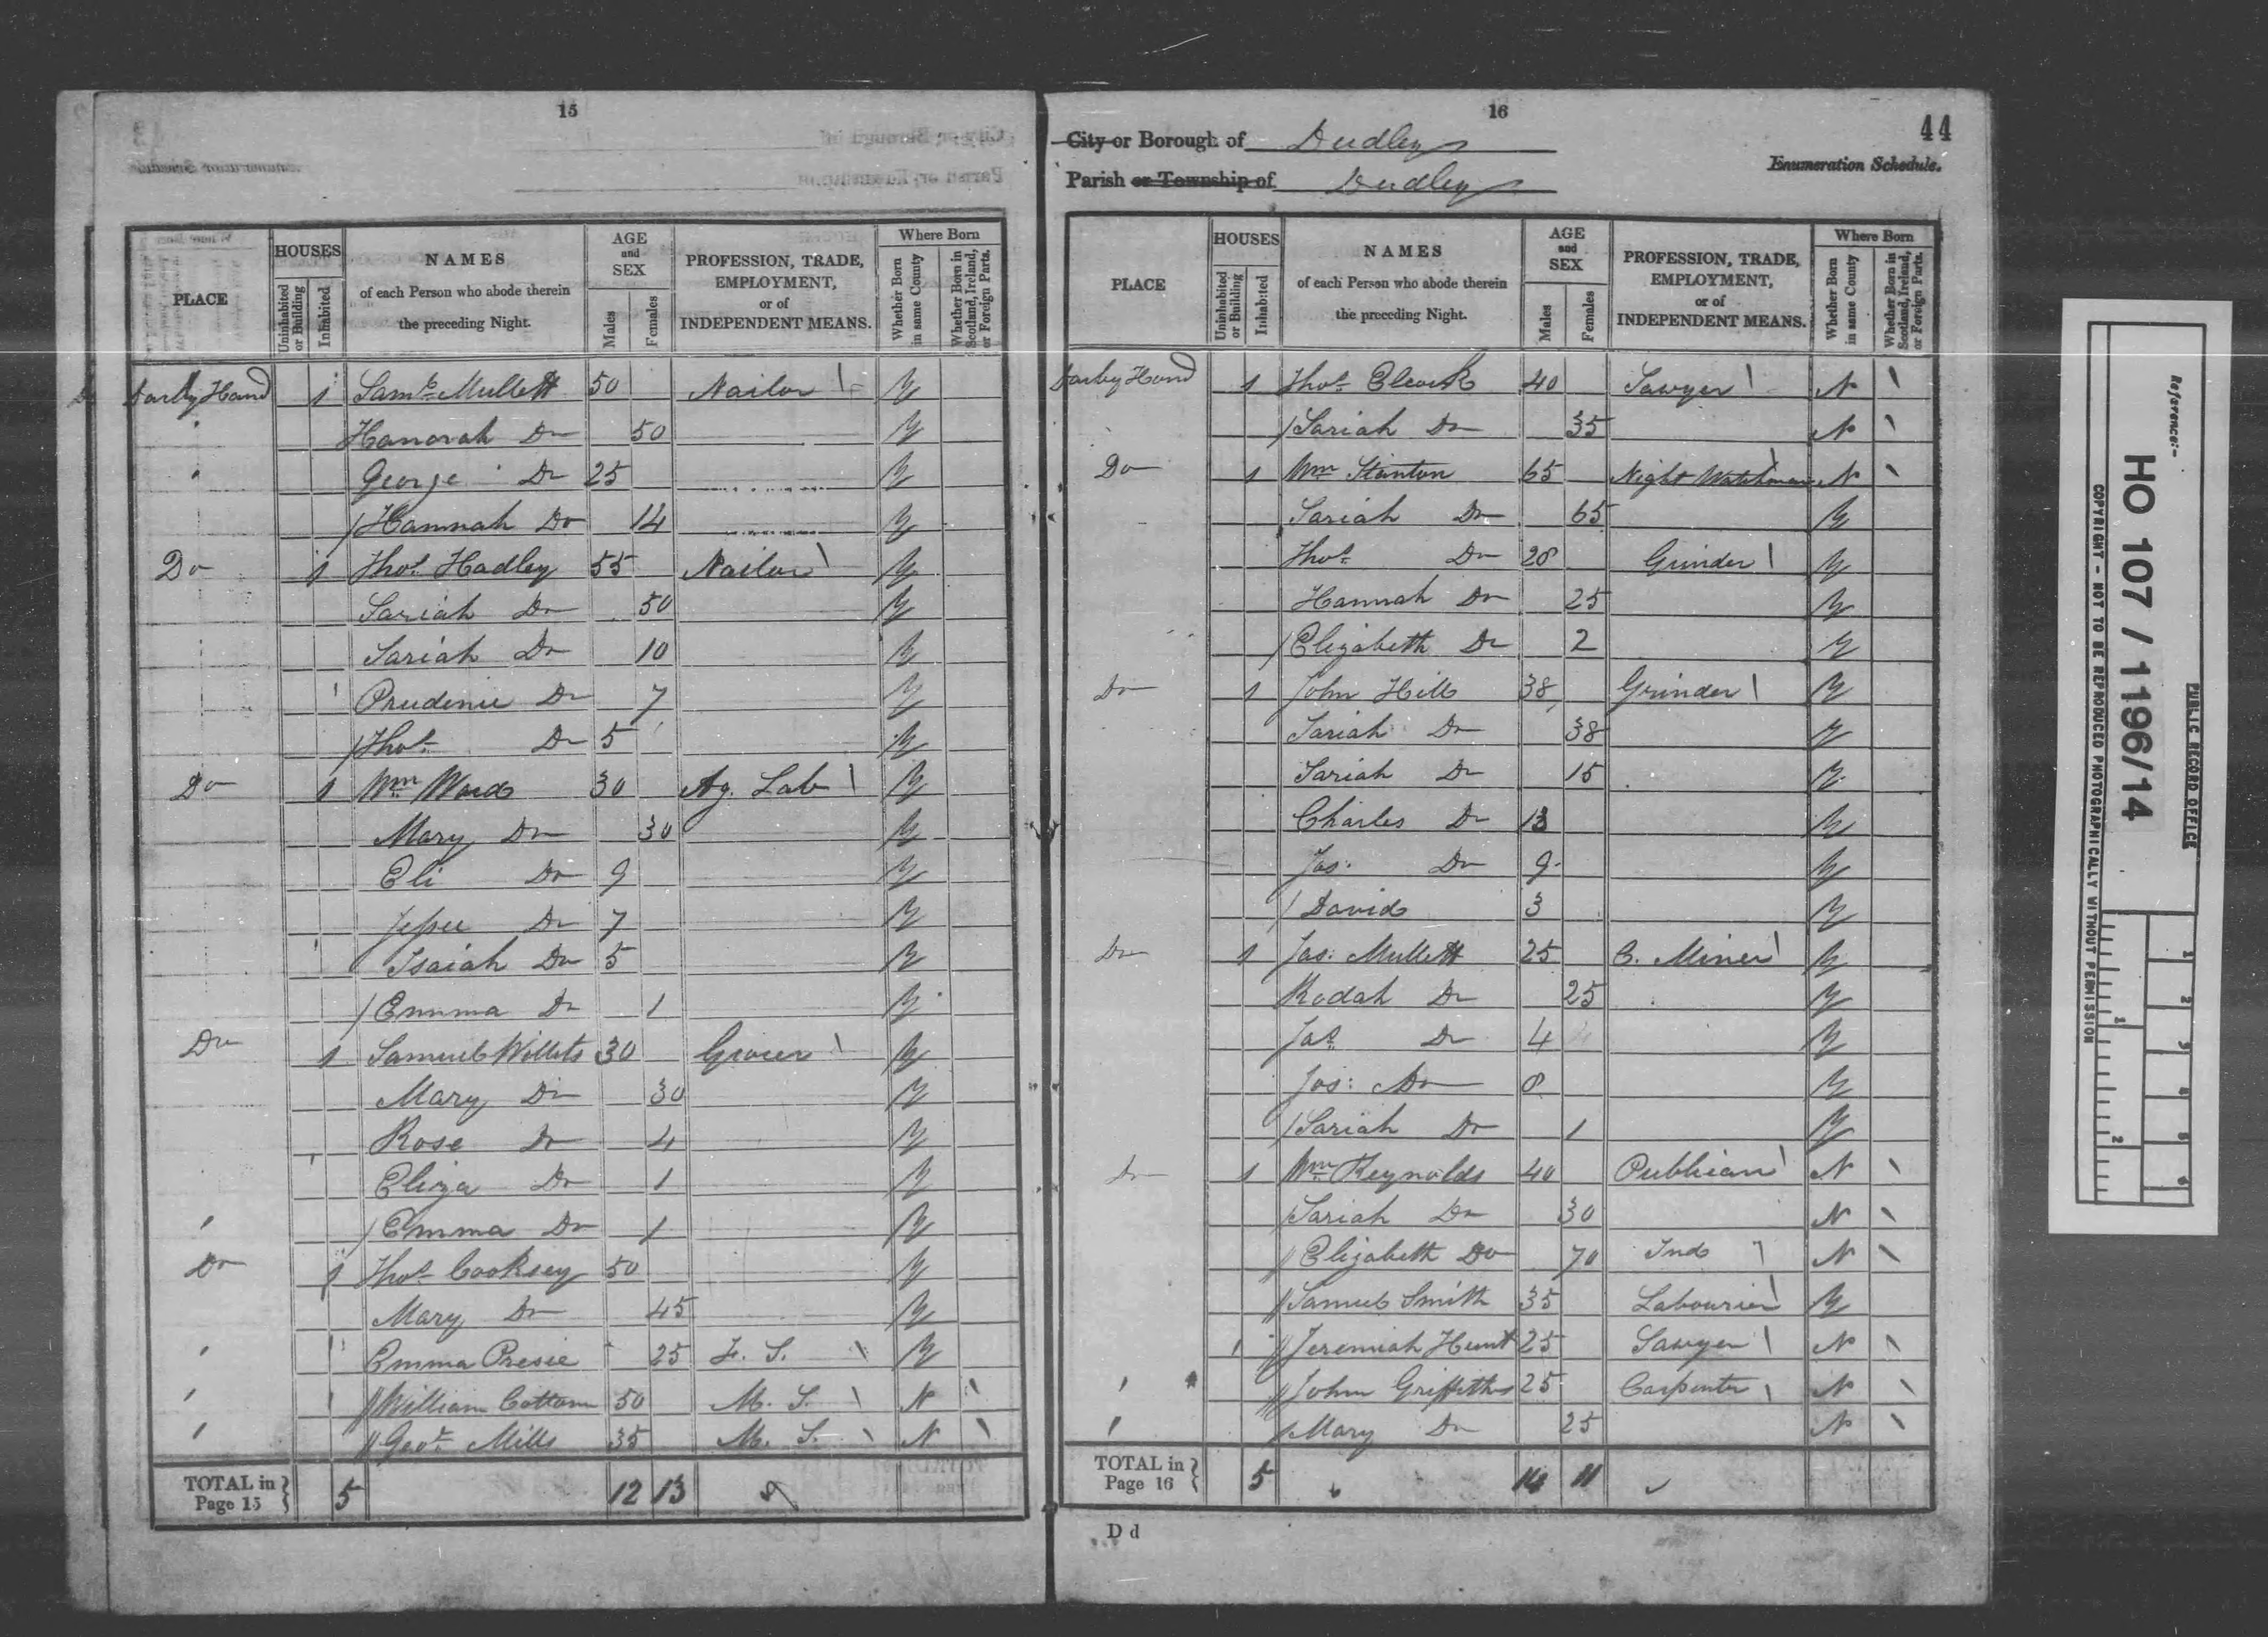 15
PLACE
HOUSES
Uninhabited or Building
Inhabited
NAMES
of each Person who abode therein
the preceding Night.
AGE
and
SEX
Males
Females
PROFESSION, TRADE,
EMPLOYMENT,
or of
INDEPENDENT MEANS.
Where Born
Whether Born in same County
Whether Born in Scotland, Ireland, or Foreign Parts.
Darby Hand 1 Saml. Mullett 50 Nailor Y
Hanorah Do 50 Y
George Do 25 Y
Hannah Do 14 Y
Do 1 Thos. Hadley 55 Nailor Y
Sariah Do 50 Y
Sariah Do 10 Y
Prudence Do 7 Y
Thos. Do 5 Y
Do 1 Wm Ward 30 Ag. Lab Y
Mary Do 30 Y
Eli Do 9 Y
Jessee Do 7 Y
Isaiah Do 5 Y
Emma Do 1 Y
Do 1 Samuel Willets 30 Grocer Y
Mary Do 30 Y
Rose Do 4 Y
Eliza Do 1 Y
Emma Do 1 Y
Do 1 Thos. Cooksey 50 Y
Mary Do 45 Y
Emma 25 F. S. Y
William Cottom 50 M. S. N
Geo. Mills 35 M. S. N
TOTAL in Page 15 5 12 13
16
44
City or Borough of Dudley
Enumeration Schedule.
Parish or Township of Dudley
PLACE
HOUSES
Uninhabited or Building
Inhabited
NAMES
of each Person who abode therein
the preceding Night.
AGE
and
SEX
Males
Females
PROFESSION, TRADE,
EMPLOYMENT,
or of
INDEPENDENT MEANS.
Where Born
Whether Born in same County
Whether Born in Scotland, Ireland, or Foreign Parts.
Darby Hand 1 Thos. Elcock 40 Sawyer N
Sariah Do 35 N
Do 1 Wm Stanton 65 Night Watchman N
Sariah Do 65 Y
Thos. Do 20 Grinder Y
Hannah Do 25 Y
Elizabeth Do 2 Y
Do 1 John Hill 38 Grinder Y
Sariah Do 38 Y
Sariah Do 15 Y
Charles Do 13 Y
Jos. Do 9 Y
David 3 Y
Do 1 Jas. Mullett 25 C. Miner Y
Rodah Do 25 Y
Jas. Do 4 Y
Jos: Do Y
Sariah Do 1 Y
Do 1 Wm Reynolds 40 Publican N
Sariah Do 30 N
Elizabeth Do 70 Ind N
Samuel Smith 35 Labourier Y
Jeremiah Hunt 25 Sawyer N
John Griffiths 25 Carpenter N
Mary Do 25 N
TOTAL in Page 16 5 14 11
D d
Reference:-
HO 107 / 1196/14
PUBLIC RECORD OFFICE
COPYRIGHT - NOT TO BE REPRODUCED PHOTOGRAPHICALLY WITHOUT PERMISSION
1
2
3
4
5
6
1
2